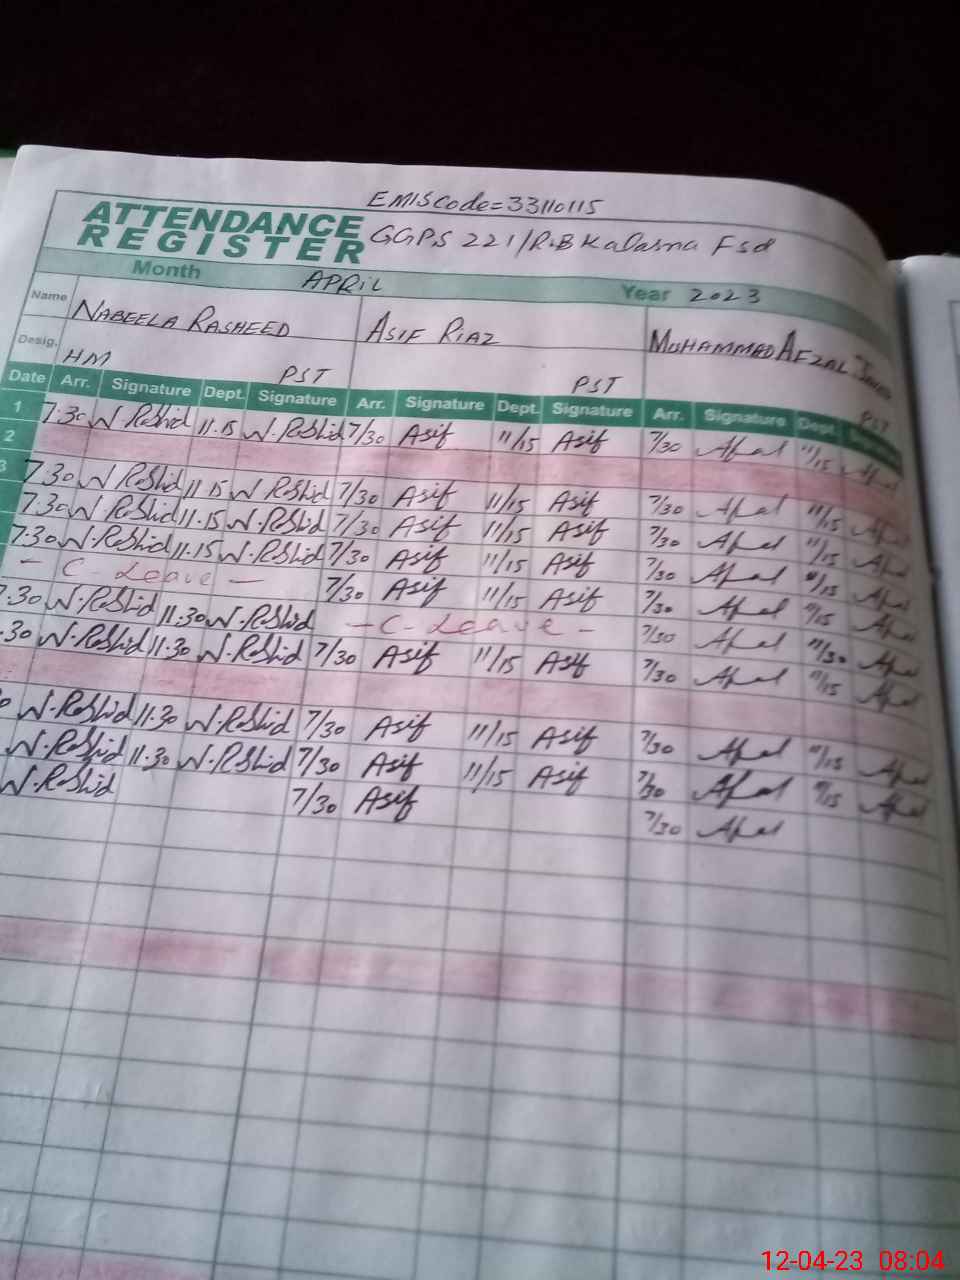 EMIS Code=33110115
ATTENDANCE
REGISTER
GGPS 221/R.B Kalasna Fsd
Month APRIL Year 2023
Name NABEELA RASHEED ASIF RIAZ MUHAMMAD AFZAL
Desig. HM PST PST PST
Date Arr. Signature Dept. Signature Arr. Signature Dept. Signature Arr. Signature Dept.
1 7:30 N. Rashid 11.15 N. Rashid 7/30 Asif 11/15 Asif 7/30 Afzal 11/15 Afzal
2
3 7.30 N Rashid 11.15 N Rashid 7/30 Asif 11/15 Asif 7/30 Afzal 11/15 Afzal
7.30 N Rashid 11.15 N. Rashid 7/30 Asif 11/15 Asif 7/30 Afzal 11/15 Afzal
7.30 N. Rashid 11.15 N. Rashid 7/30 Asif 11/15 Asif 7/30 Afzal 11/15 Afzal
- C - Leave - 7/30 Asif 11/15 Asif 7/30 Afzal 11/15 Afzal
7.30 N. Rashid 11.30 N. Rashid - C - Leave - 7/30 Afzal 11/30 Afzal
.30 N. Rashid 11.30 N. Rashid 7/30 Asif 11/15 Asif 7/30 Afzal 11/15 Afzal
0 N. Rashid 11.30 N. Rashid 7/30 Asif 11/15 Asif 7/30 Afzal 11/15 Afzal
N. Rashid 11.30 N. Rashid 7/30 Asif 11/15 Asif 7/30 Afzal 11/15 Afzal
N. Rashid 7/30 Asif 7/30 Afzal
12-04-23 08:04